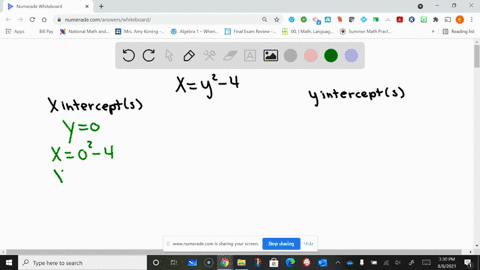 Numerade Whiteboard
numerade.com/answers/whiteboard/
Apps
Bill Pay
National Math and...
Mrs. Amy Koning -...
Algebra 1 – Whenet...
Final Exam Review -...
IXL | Math, Languag...
Summer Math Pract...
Other bookmarks
Reading list
A
X = y² - 4
X intercept(s)
y intercept(s)
y = 0
X = 0² - 4
www.numerade.com is sharing your screen.
Stop sharing
Hide
Type here to search
3:30 PM
8/6/2021